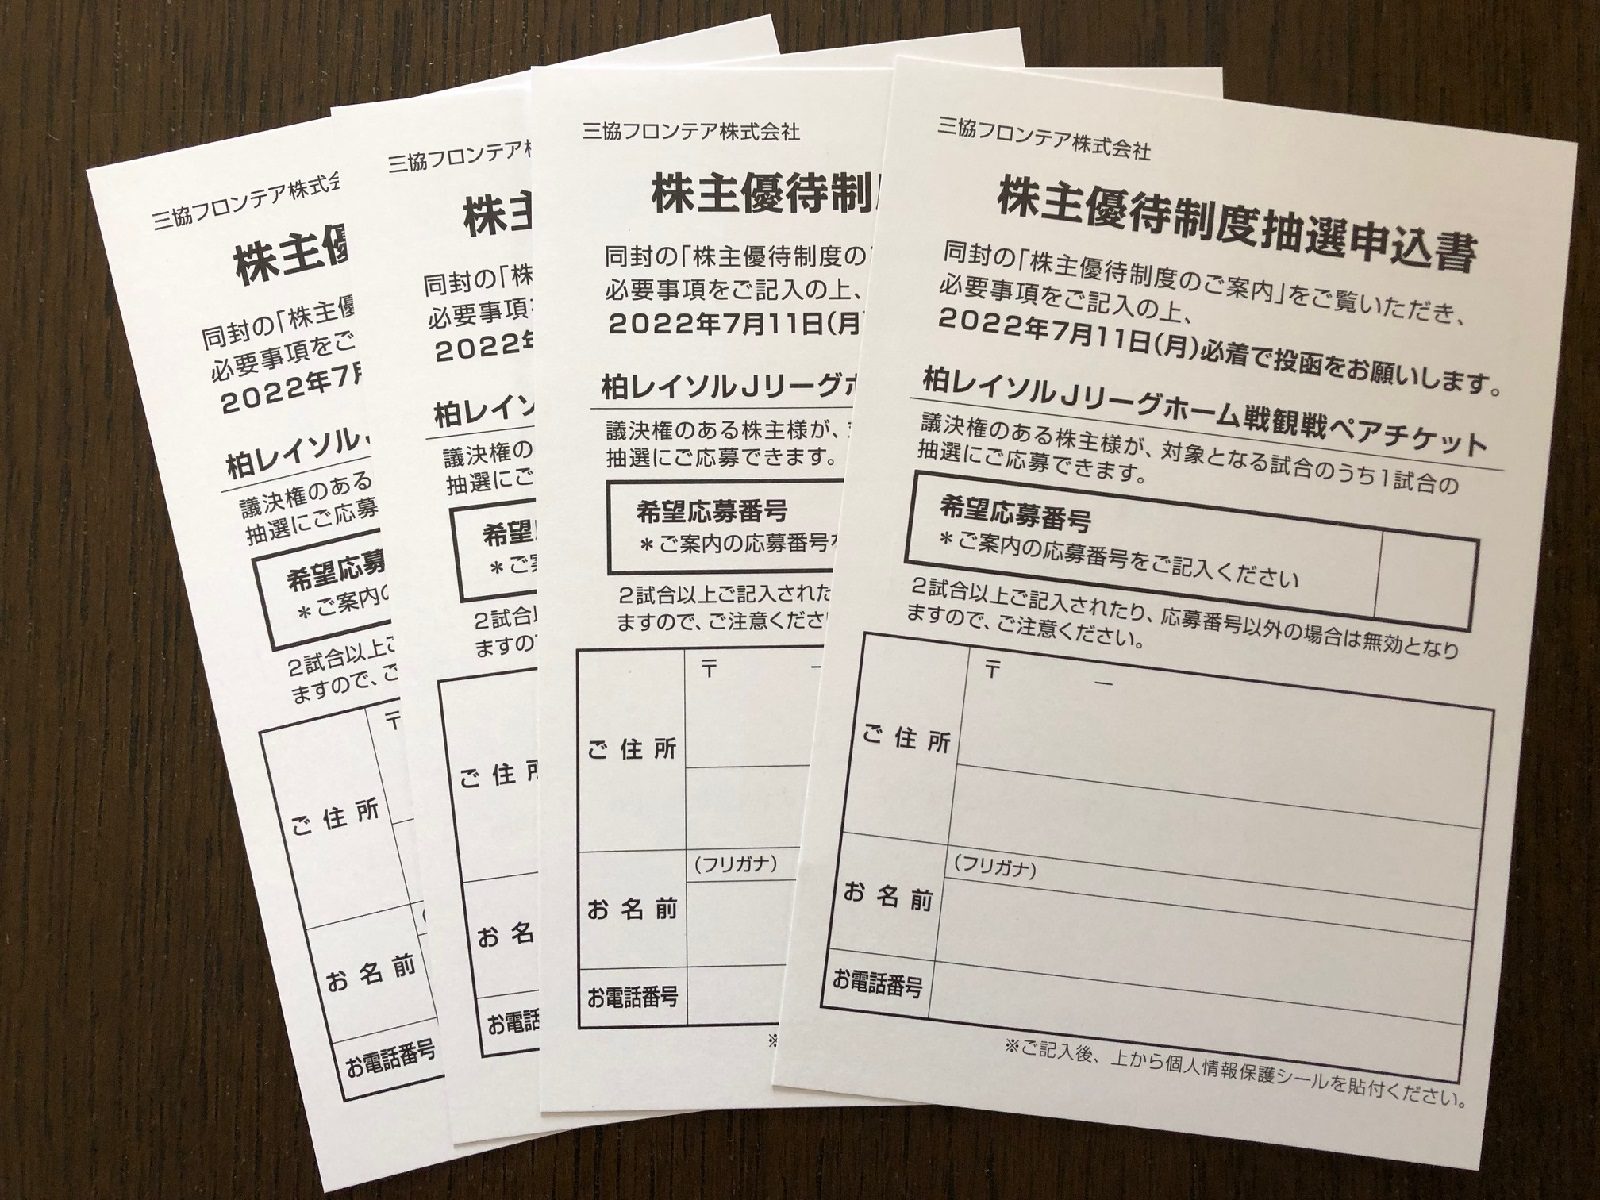 三協フロンテア株式
株主優
同封の「株主優
必要事項をご
2022年7月
柏レイソル
議決権のある
抽選にご応募
希望応募
＊ご案内の
2試合以上ご
ますので、ご
〒
ご住所
お名前
お電話番号
三協フロンテア
株主
同封の「株
必要事項
2022年
柏レイソ
議決権の
抽選にご
希望
＊ご
2試合
ますの
ご住所
お名
お電話
三協フロンテア株式会社
株主優待制
同封の「株主優待制度の
必要事項をご記入の上、
2022年7月11日(月)
柏レイソルJリーグホ
議決権のある株主様が、
抽選にご応募できます。
希望応募番号
＊ご案内の応募番号
2試合以上ご記入された
ますので、ご注意くださ
〒 －
ご住所
(フリガナ)
お名前
お電話番号
※
三協フロンテア株式会社
株主優待制度抽選申込書
同封の「株主優待制度のご案内」をご覧いただき、
必要事項をご記入の上、
2022年7月11日(月)必着で投函をお願いします。
柏レイソルJリーグホーム戦観戦ペアチケット
議決権のある株主様が、対象となる試合のうち1試合の
抽選にご応募できます。
希望応募番号
＊ご案内の応募番号をご記入ください
2試合以上ご記入されたり、応募番号以外の場合は無効となり
ますので、ご注意ください。
〒 －
ご住所
(フリガナ)
お名前
お電話番号
※ご記入後、上から個人情報保護シールを貼付ください。